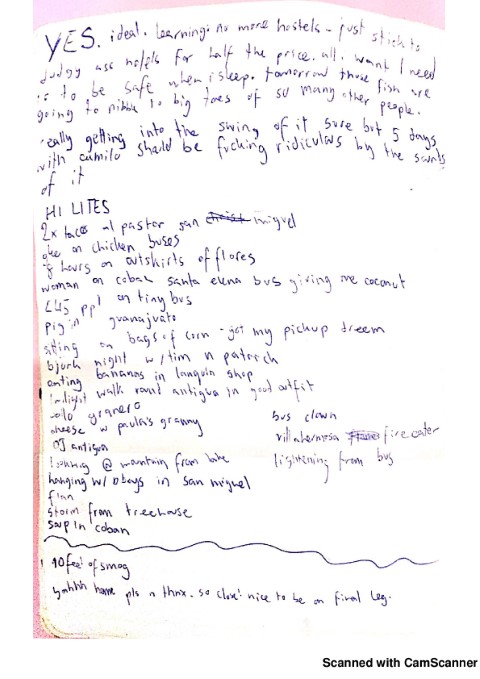 YES. ideal. learning: no more hostels - just stick to
dodgy ass hotels for half the price. all. want I need
is to be safe when i sleep. tomorrow those fish are
going to nibble 10 big toes of so many other people.
really getting into the swing of it sure but 5 days
with camilo should be fucking ridiculous by the sounds
of it
HI LITES
2x tacos al pastor san miguel
on chicken buses
8 hours on outskirts of flores
woman on coban santa elena bus giving me coconut
45 ppl on tiny bus
pig in guanajuato
sitting on bags of corn - got my pickup dreem
bjork night w/ tim n patrick
eating bananas in lanquin shop
twilight walk round antigua in good outfit
pollo granero
cheese w paula's granny
OJ antigua
looking @ mountain from bike
hanging w/ boys in san miguel
flan
storm from treehouse
soup in coban
bus clown
villahermosa fire eater
lightening from bus
10 feet of smog
home pls n thnx. so close! nice to be on final leg.
Scanned with CamScanner